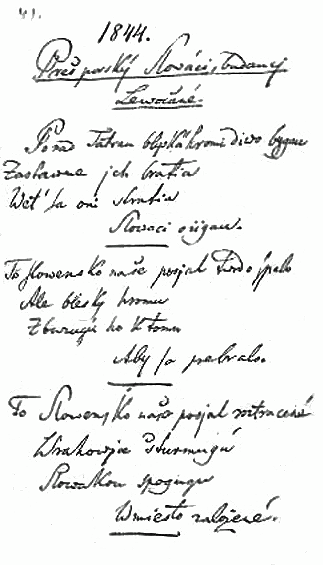 41.
1844.
Prešporskí Slováci, budúci
Lewočané.
Ponad Tatrou blýská hromi diwo bygau
Zastawme jch bratia
Wet' sa oni stratia
Slowaci ožigau.
To Slowensko naše posjal twrdo spalo
Ale blesky hromu
Zburzugú ho k tomu
Aby sa prebralo.
To Slowensko naše posjal roztracené
Wrahowja Šturmugú
Slowákou spogugu
Wmiesto založené.